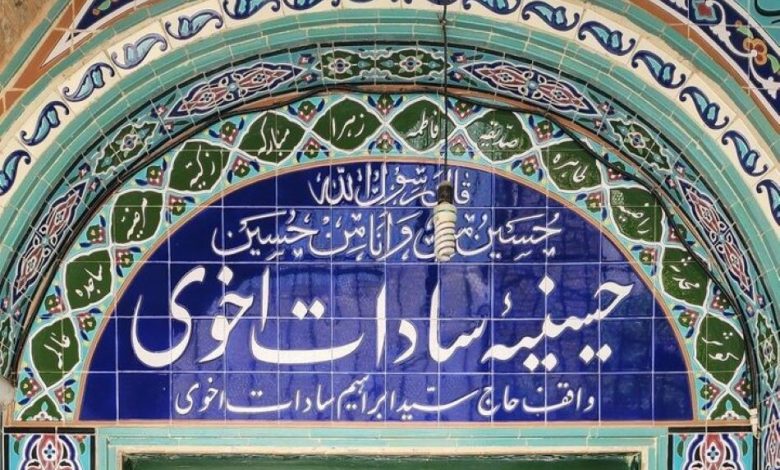 صدیقه
فاطمه
زهرا
مبارکه
زکیة
راضیه
طاهره
ساجده
قال رسول الله
حسین منی و انا من حسین
حسینیهٔ سادات اخوی
واقف حاج سید ابراهیم سادات اخوی